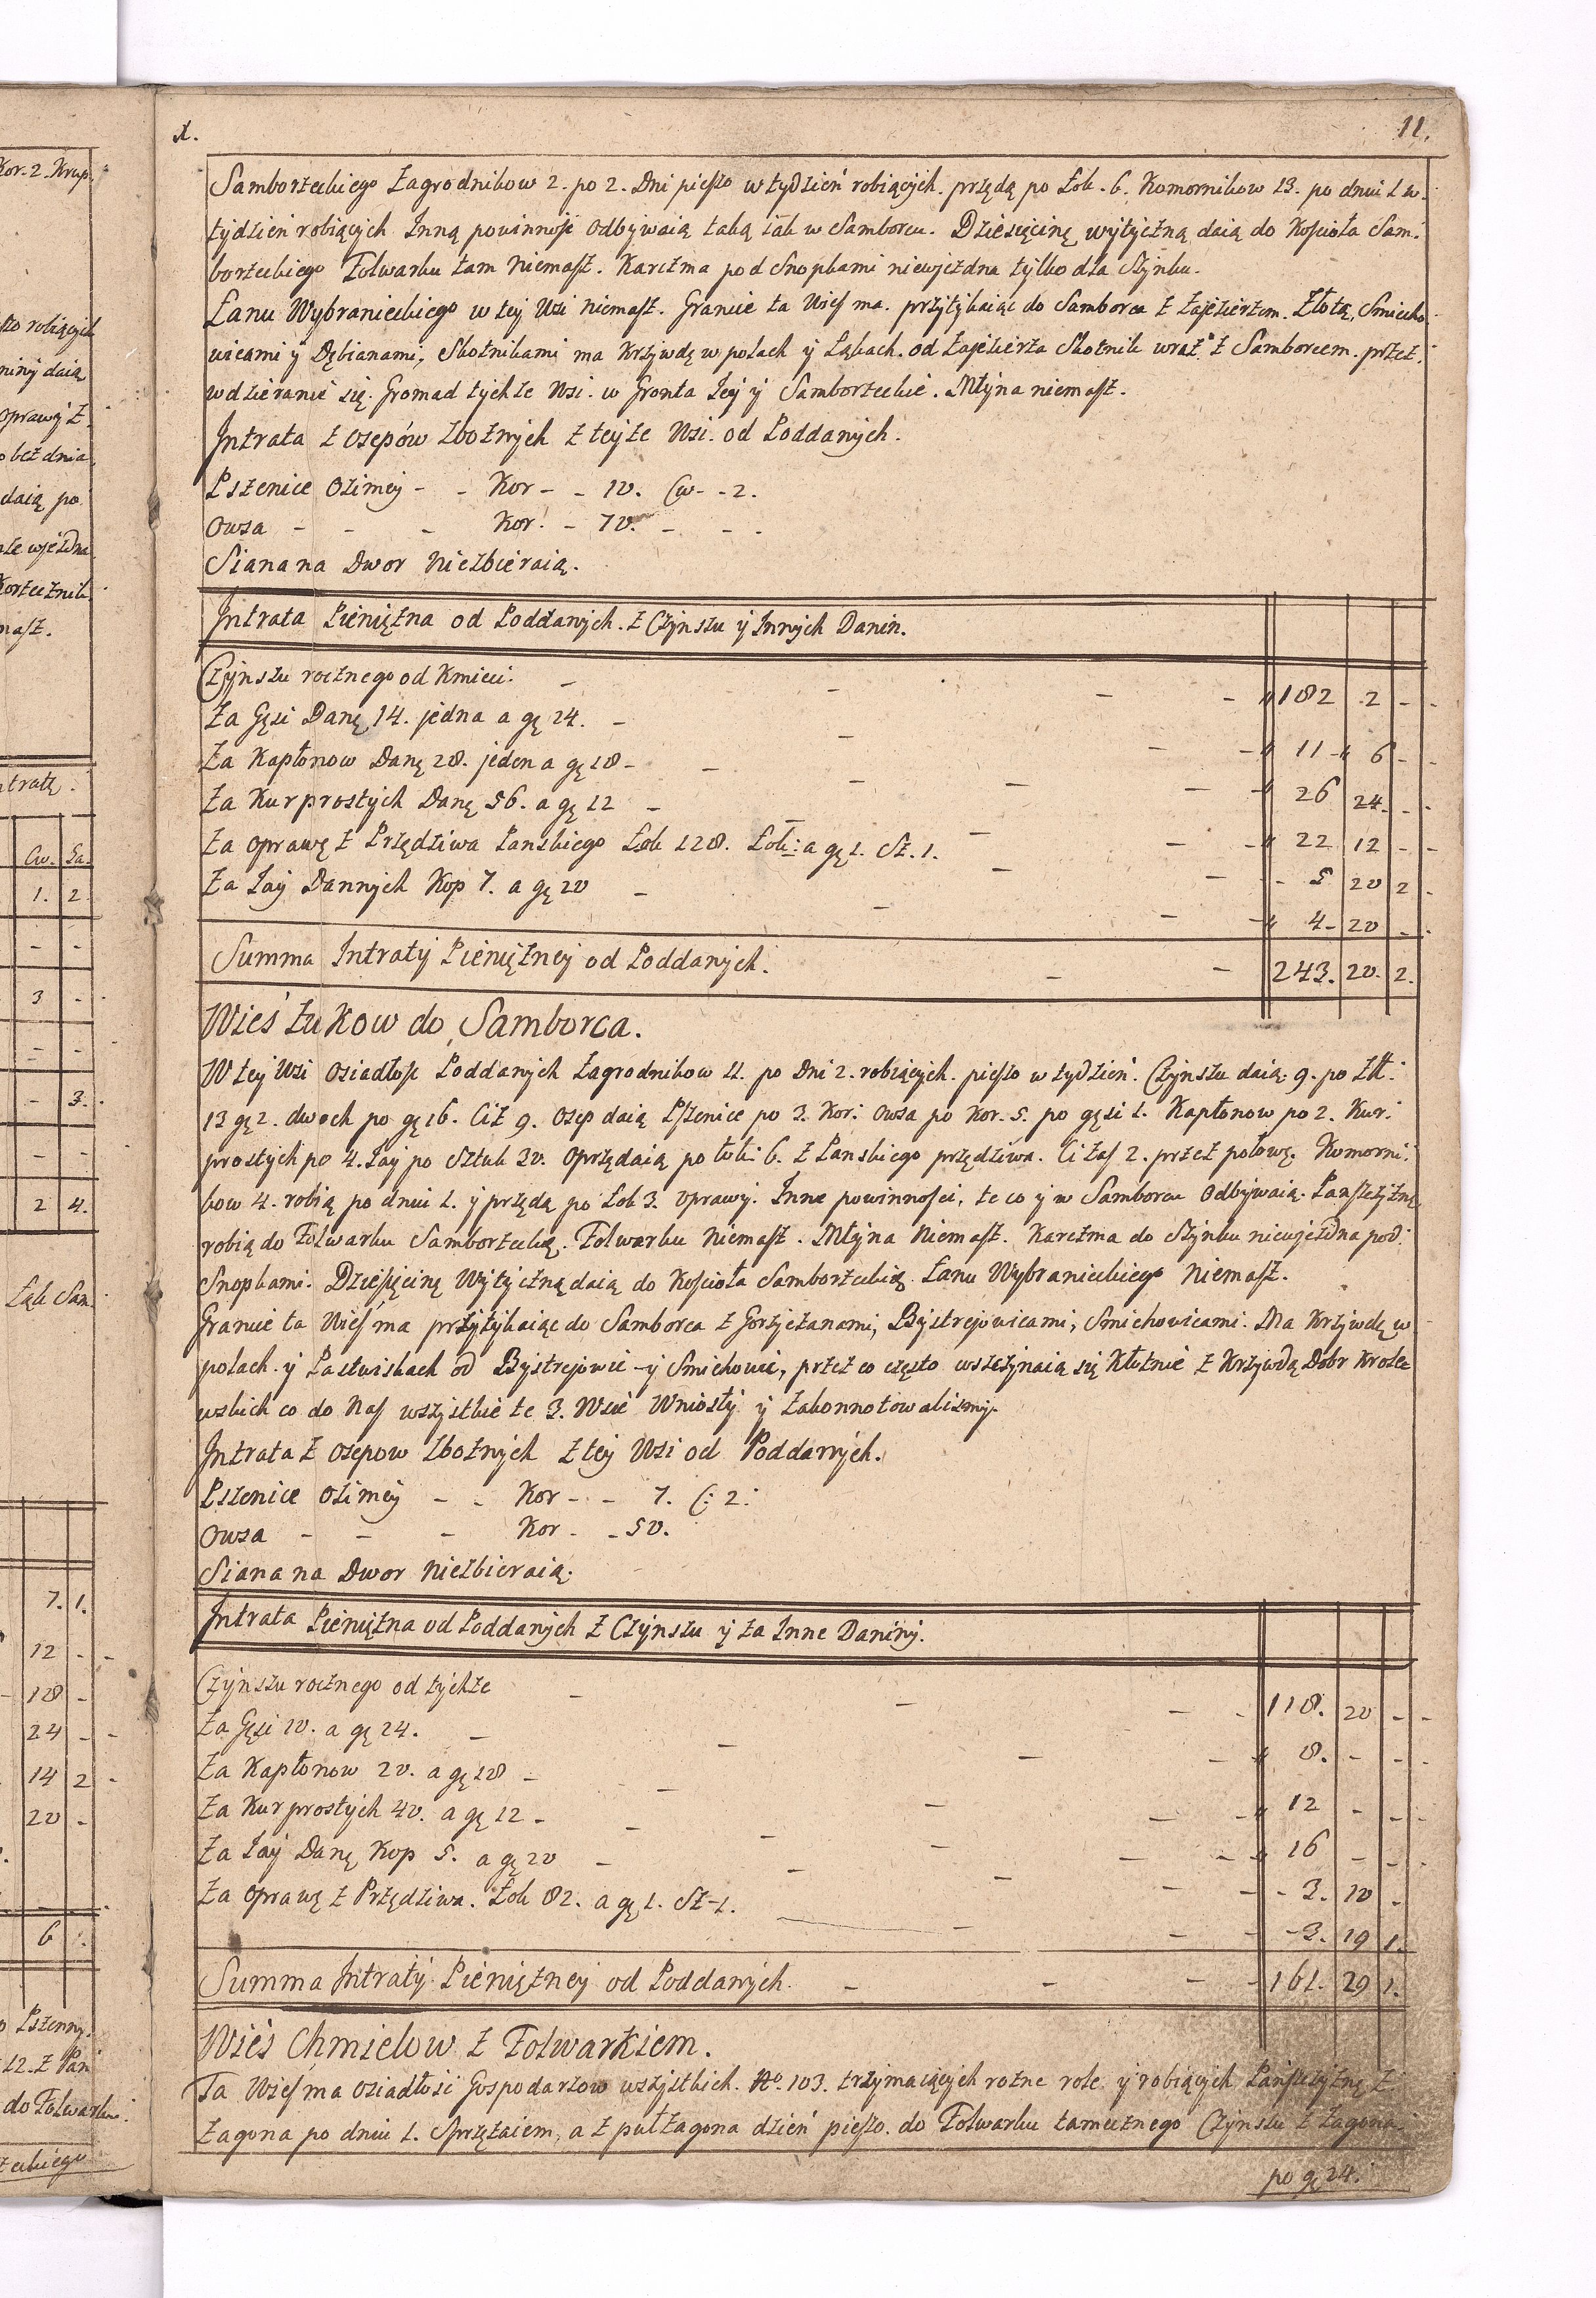 x. 11.
Samborzeckiego Zagrodnikow 2. po 2. Dni pieszo w tydzień robiących. przędą po Łok. 6. Komornikow 13. po dniu 1 w.
tydzień robiących Inną powinność odbywaią taką iak w Samborcu. Dziesięcinę wytyczną daią do Kościoła Sam:
borzeckiego Folwarku tam Niemasz. Karczma pod Snopkami niewjezdna tylko dla Szynku.
Łanu Wybranieckiego w tey Wsi Niemasz. Granice ta Wieś ma. przytykaiąc do Samborca z Zajezierzem. Złotą, Smiecho
wicami y Dębianami, Skotnikami ma Krzywdę w polach y Łąkach. od Zajezierza Skotnik wraz z Samborcem. przez.
wdzieranie się. Gromad tychże Wsi. w Gronta Jey y Samborzeckie. Młyna niemasz.
Intrata z Osepów zbożnych z teyże Wsi. od Poddanych.
Pszenice Ozimey - - Kor - - 10. Cw - - 2.
Owsa - - - Kor. - 70. - - -
Siana na Dwor Niezbieraią.
Intrata Pieniężna od Poddanych. z Czynszu y Innych Danin.
Czynszu rocznego od Kmieci. - - - - 182 2 - -
Za Gęsi Danę 14. jedna a gę 24. - - - - 11 - 6 - -
Za Kapłonow Danę 28. jeden a gę 18 - - - - - 26 24 - -
Za Kur prostych Danę 56. a gę 12 - - - - 22 12 - -
Za Oprawę z Przędziwa Panskiego Łok 128. Łok: a gę 1. Sz. 1. - - - 5 20 2 -
Za Jay Dannych Kop 7. a gę 20 - - - - 4 - 20 - -
Summa Intraty Pieniężney od Poddanych. - - 243. 20. 2.
Wieś Żukow do Samborca.
W tey Wsi Osiadłość Poddanych Zagrodnikow 11. po Dni 2. robiących. pieszo w tydzień. Czynszu daią. 9. po złł:
13 gę 2. dwoch po gę 16. Ciż 9. Osep daią Pszenice po 3. Kor: Owsa po Kor. 5. po gęsi 1. Kapłonow po 2. Kur.
prostych po 4. Jay po Sztuk 30. Oprzędaią po Łok: 6. z Panskiego przędziwa. Ci zaś 2. przez połowę. Komorni:
kow 4. robią po dniu 1. y przędą po Łok 3. oprawy. Inne powinności, te co y w Samborcu Odbywaią. Panszczyznę
robią do Folwarku Samborzecką. Folwarku Niemasz. Młyna Niemasz. Karczma do Szynku niewjezdna pod:
Snopkami. Dziesięcinę Wytyczną daią do Kościoła Samborzecką Łanu Wybranieckiego Niemasz.
Granice ta Wieś ma przytykaiąc do Samborca z Gorzyczanami, Bystrejowicami, Smichowicami. Ma Krzywdę w
polach. y Pastwiskach od Bystrejowic - y Smichowic, przez co często wszczynaią się Kłutnie z Krzywdą Dobr Krole
wskich co do Nas wszystkie te 3. Wsie Wniosły y Zakonnotowalismy.
Intrata z Osepow zbożnych z tey Wsi od Poddanych.
Pszenice Ozimey - - Kor - - 7. C: 2:
Owsa - - - Kor - - 50.
Siana na Dwor Niezbieraią.
Intrata Pieniężna od Poddanych z Czynszu y za Inne Daniny.
Czynszu rocznego od tychże - - - - 118. 20 - -
Za Gęsi 10. a gę 24. - - - - 8. - - -
Za Kapłonow 20. a gę 18 - - - - - 12 - - -
Za Kur prostych 40. a gę 12 - - - - - 16 - - -
Za Jay Danę Kop 5. a gę 20 - - - - - 3. 10 -
Za Oprawę z Przędziwa. Łok 82. a gę 1. Sz - 1. - - - 3. 19 1.
Summa Intraty Pieniężney od Poddanych. - - - 161. 29 1.
Wieś Chmielow z Folwarkiem.
Ta Wieś ma Osiadłości Gospodarzow wszystkich. No. 103. trzymaiących rozne role y robiących Panszczyznę z
Zagona po dniu 1. Sprzężaiem, a z puł Zagona dzień pieszo. do Folwarku tamecznego Czynszu z Zagona.
po gę 24.